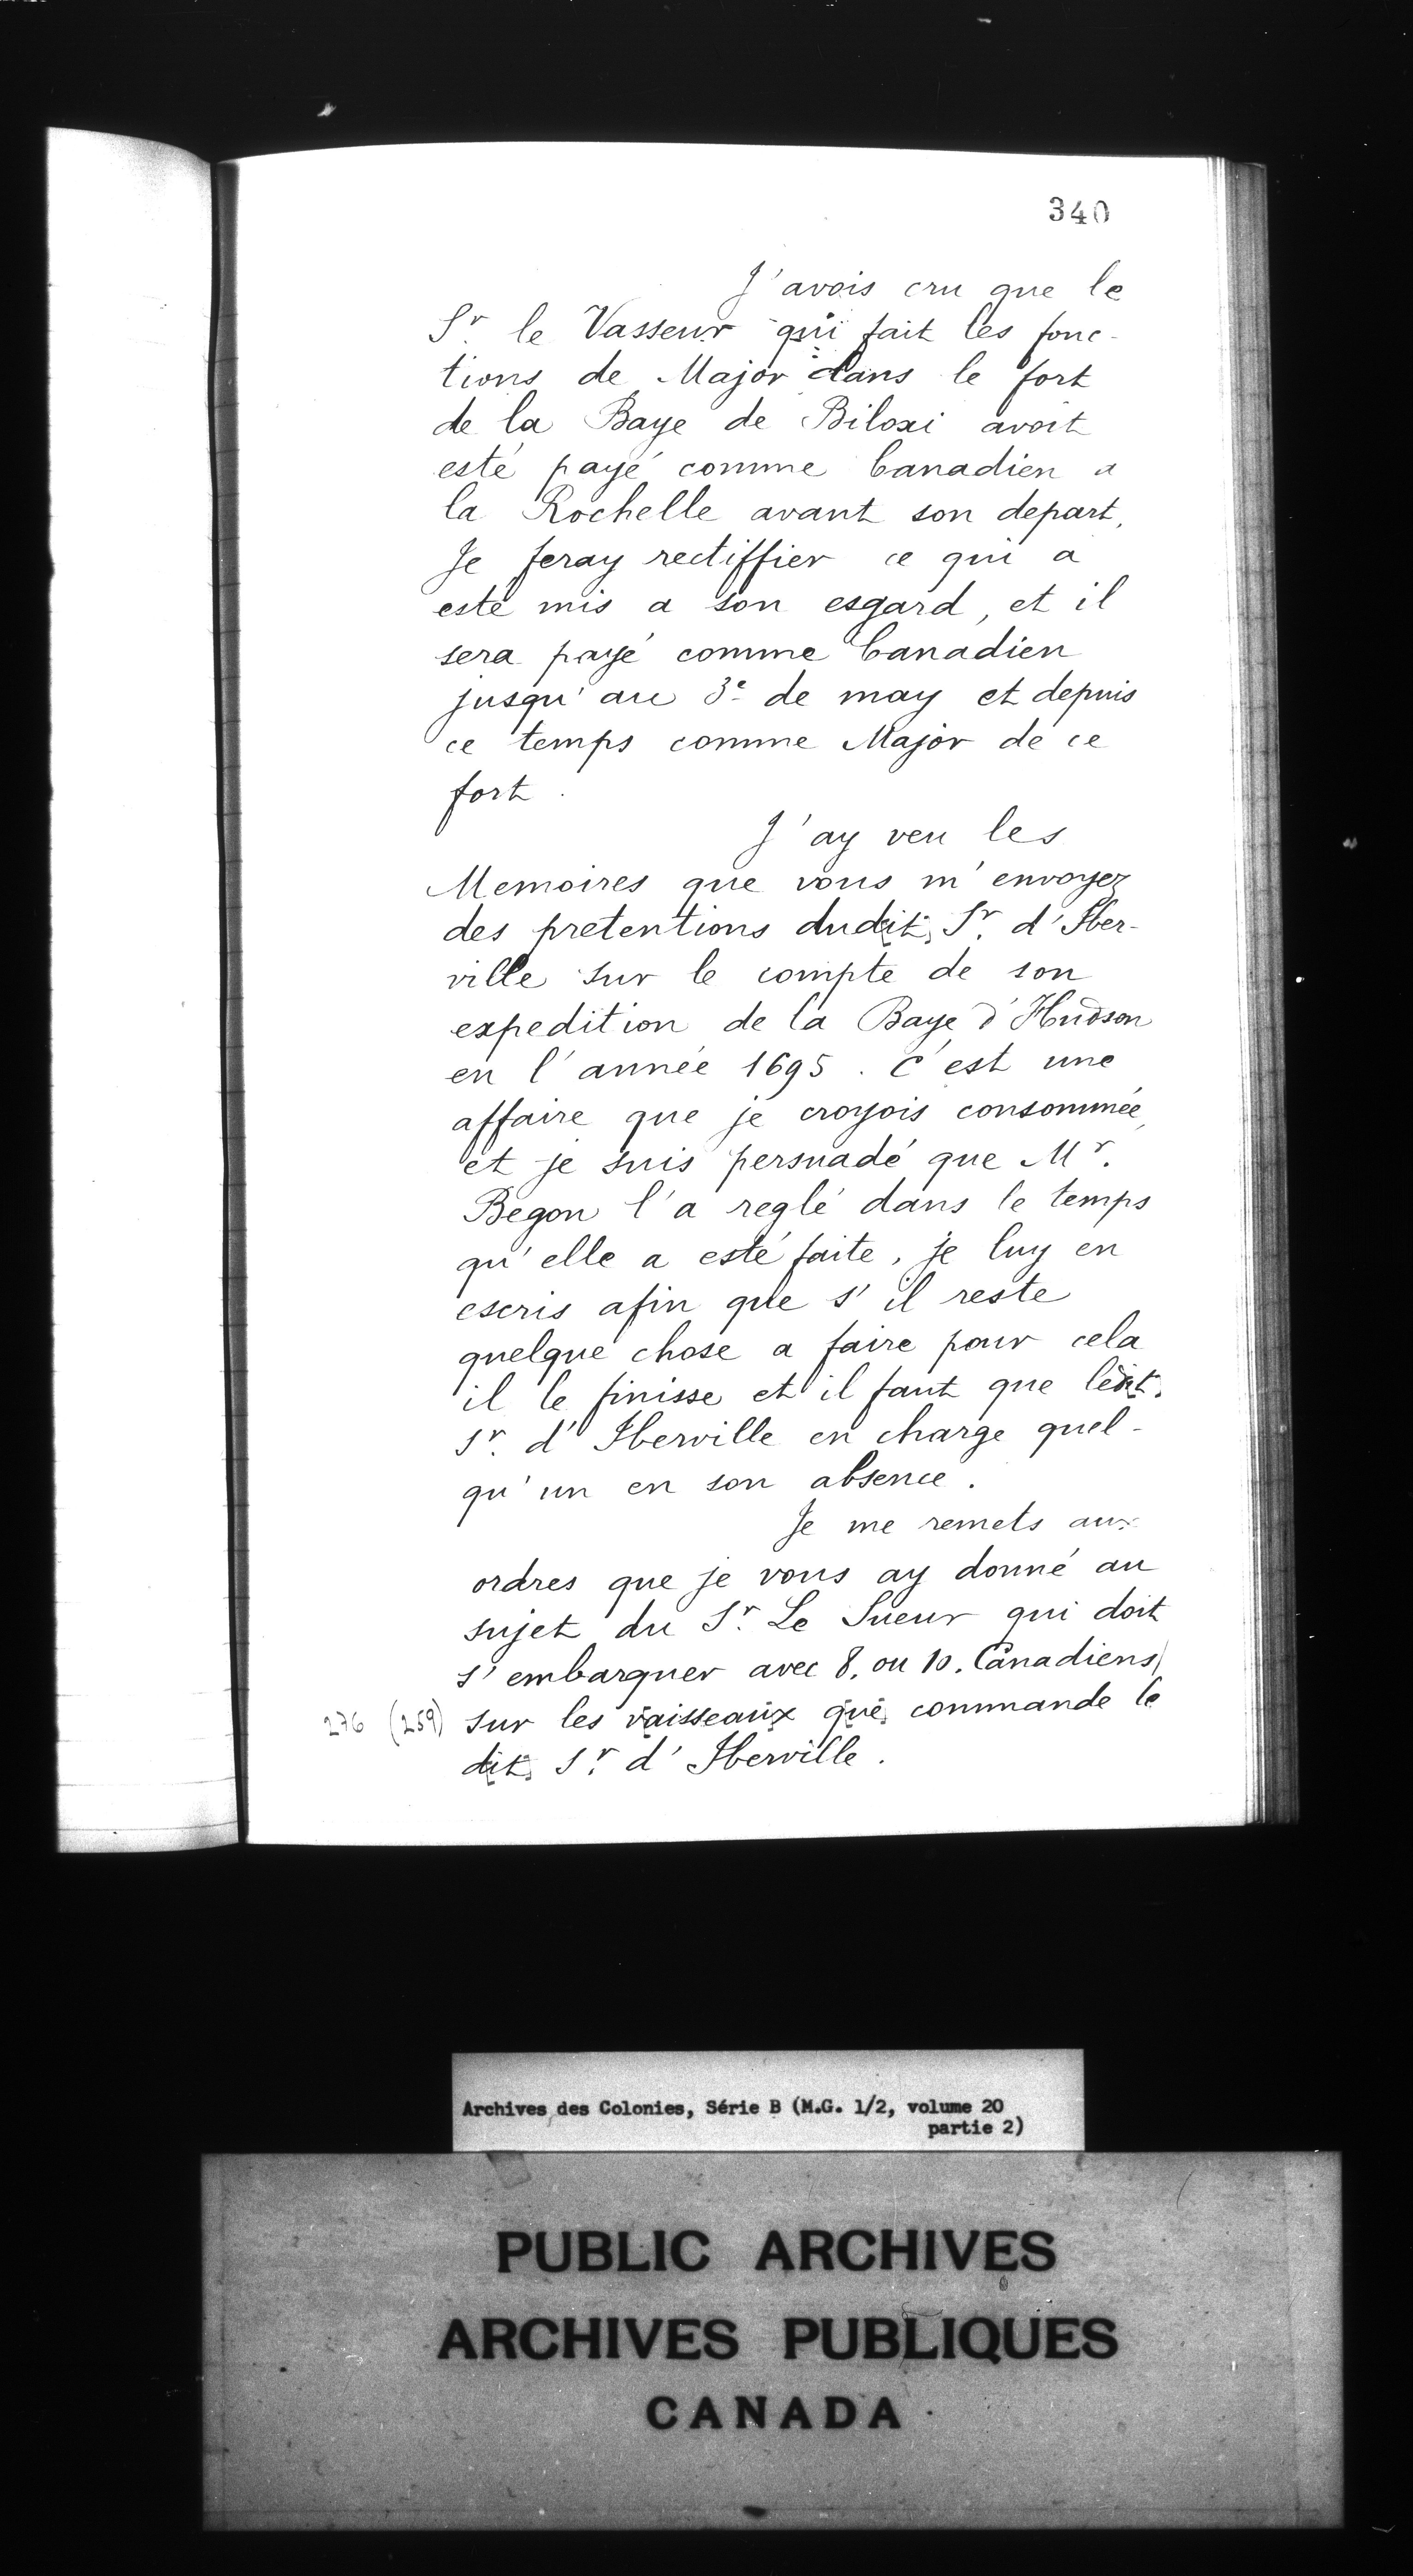 340
J'avois cru que le
Sr. le Vasseur qui fait les fonc-
tions de Major dans le fort
de la Baye de Biloxi avoit
esté payé comme Canadien a
la Rochelle avant son depart,
Je feray rectiffier ce qui a
esté mis a son esgard, et il
sera payé comme Canadien
jusqu'au 3e de may et depuis
ce temps comme Major de ce
fort.
J'ay veu les
Memoires que vous m'envoyez
des pretentions dudit Sr. d'Iber-
ville sur le compte de son
expedition de la Baye d'Hudson
en l'année 1695. C'est une
affaire que je croyois consommée,
et je suis persuadé que Mr.
Begon l'a reglé dans le temps
qu'elle a esté faite, je luy en
escris afin que s'il reste
quelque chose a faire pour cela
il le finisse et il faut que ledit
Sr. d'Iberville en charge quel-
qu'un en son absence.
Je me remets aux
ordres que je vous ay donné au
sujet du Sr. Le Sueur qui doit
s'embarquer avec 8. ou 10. Canadiens
276 (259) sur les vaisseaux que commande le
dit Sr. d'Iberville.
Archives des Colonies, Série B (M.G. 1/2, volume 20
partie 2)
PUBLIC ARCHIVES
ARCHIVES PUBLIQUES
CANADA